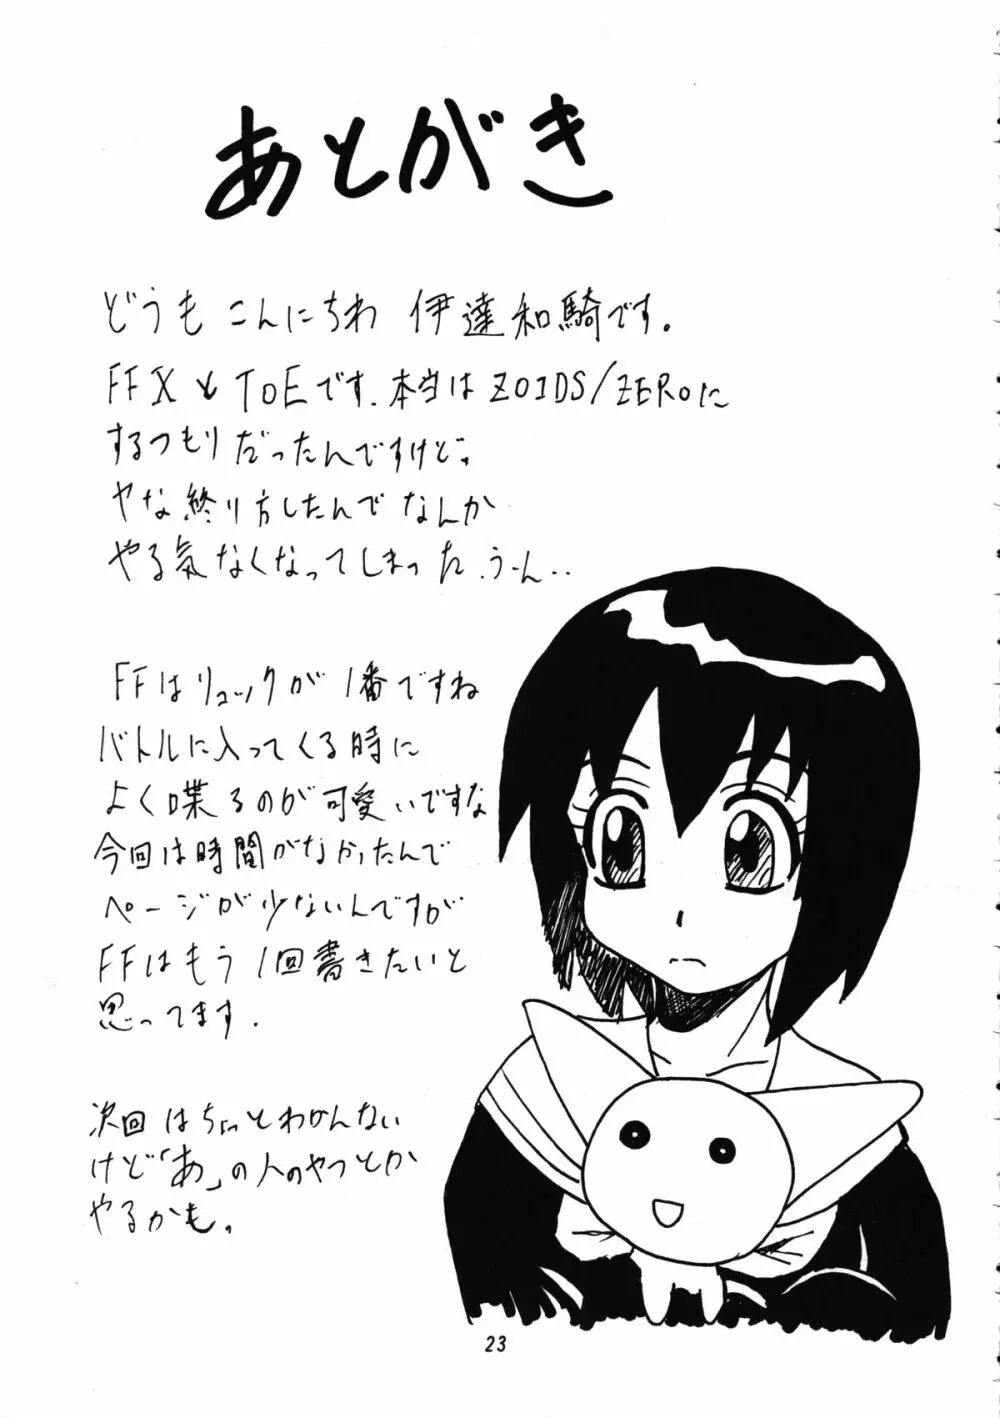 あとがき
どうも こんにちわ 伊達和騎です。
FFXとToEです.本当はZOIDS/ZEROに
するつもりだったんですけど。
ヤな終り方したんで なんか
やる気なくなってしまった.うーん..
FFはリュックが1番ですね
バトルに入ってくる時に
よく喋るのが可愛いですな
今回は時間がなかったんで
ページが少ないんですが
FFはもう1回書きたいと
思ってます.
次回はちょっとわかんない
けど「あ」の人のやつとか
やるかも。
23